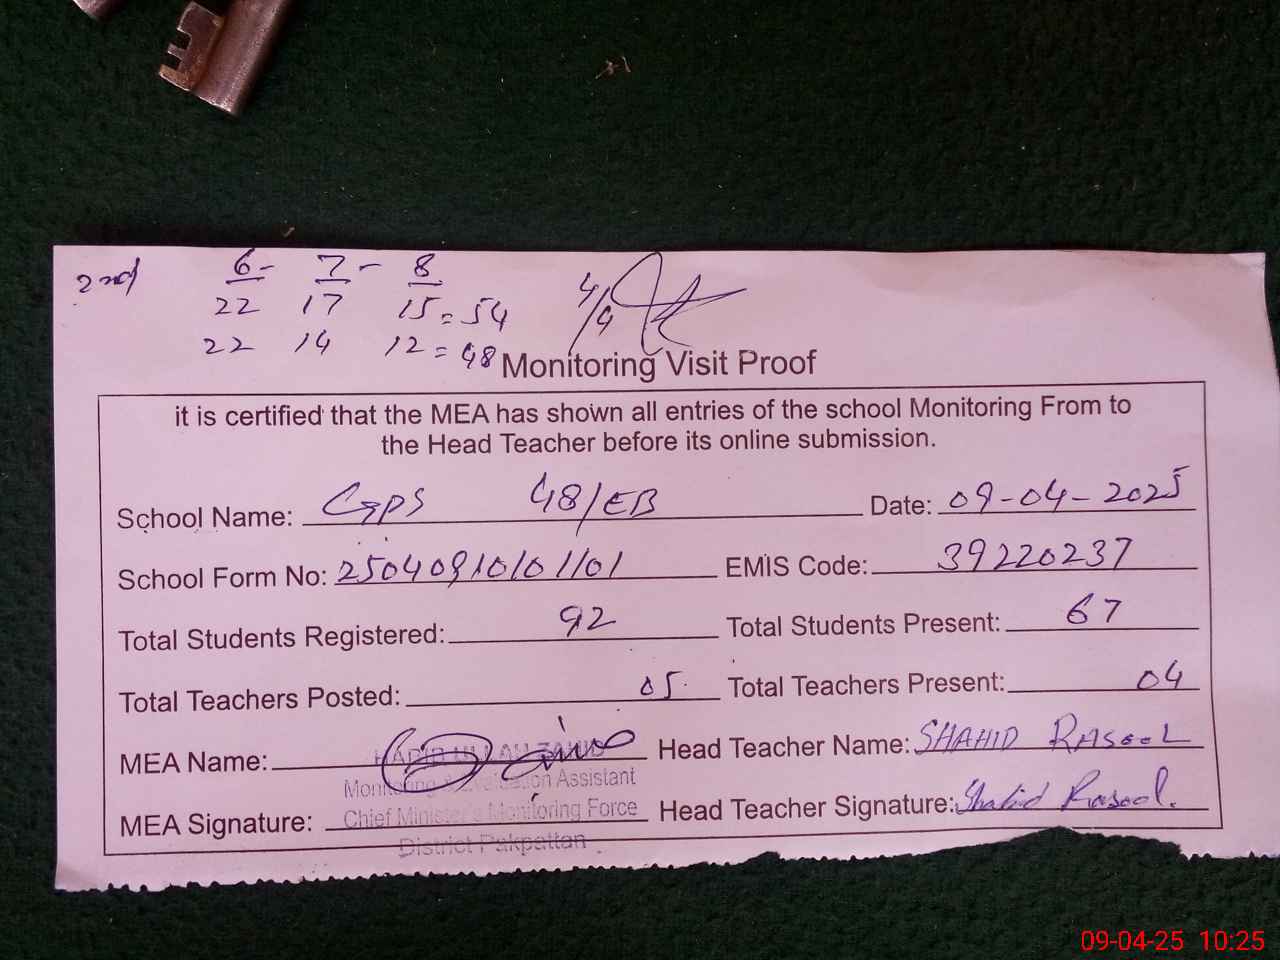 2nd 6- 7- 8
22 17 15 = 54
22 14 12 = 48
4/4
Monitoring Visit Proof
it is certified that the MEA has shown all entries of the school Monitoring From to
the Head Teacher before its online submission.
School Name: GPS 48/EB Date: 09-04-2025
School Form No: EMIS Code: 39220237
Total Students Registered: 92 Total Students Present: 67
Total Teachers Posted: 05 Total Teachers Present: 04
MEA Name: HABIB ULLAH ZAHID Head Teacher Name: SHAHID RASOOL
Monitoring & Evaluation Assistant
MEA Signature: Chief Minister's Monitoring Force Head Teacher Signature: Shahid Rasool.
District Pakpattan
09-04-25 10:25